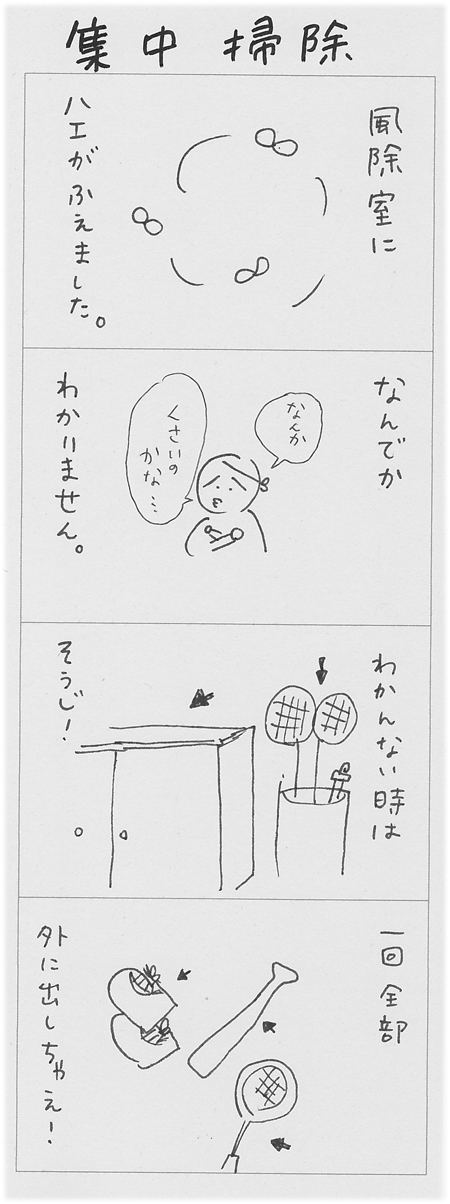 集中掃除
風除室に
ハエがふえました。
なんでか
なんか
くさいの
かな…
わかりません。
わかんない時は
そうじ!
一回全部
外に出しちゃえ!